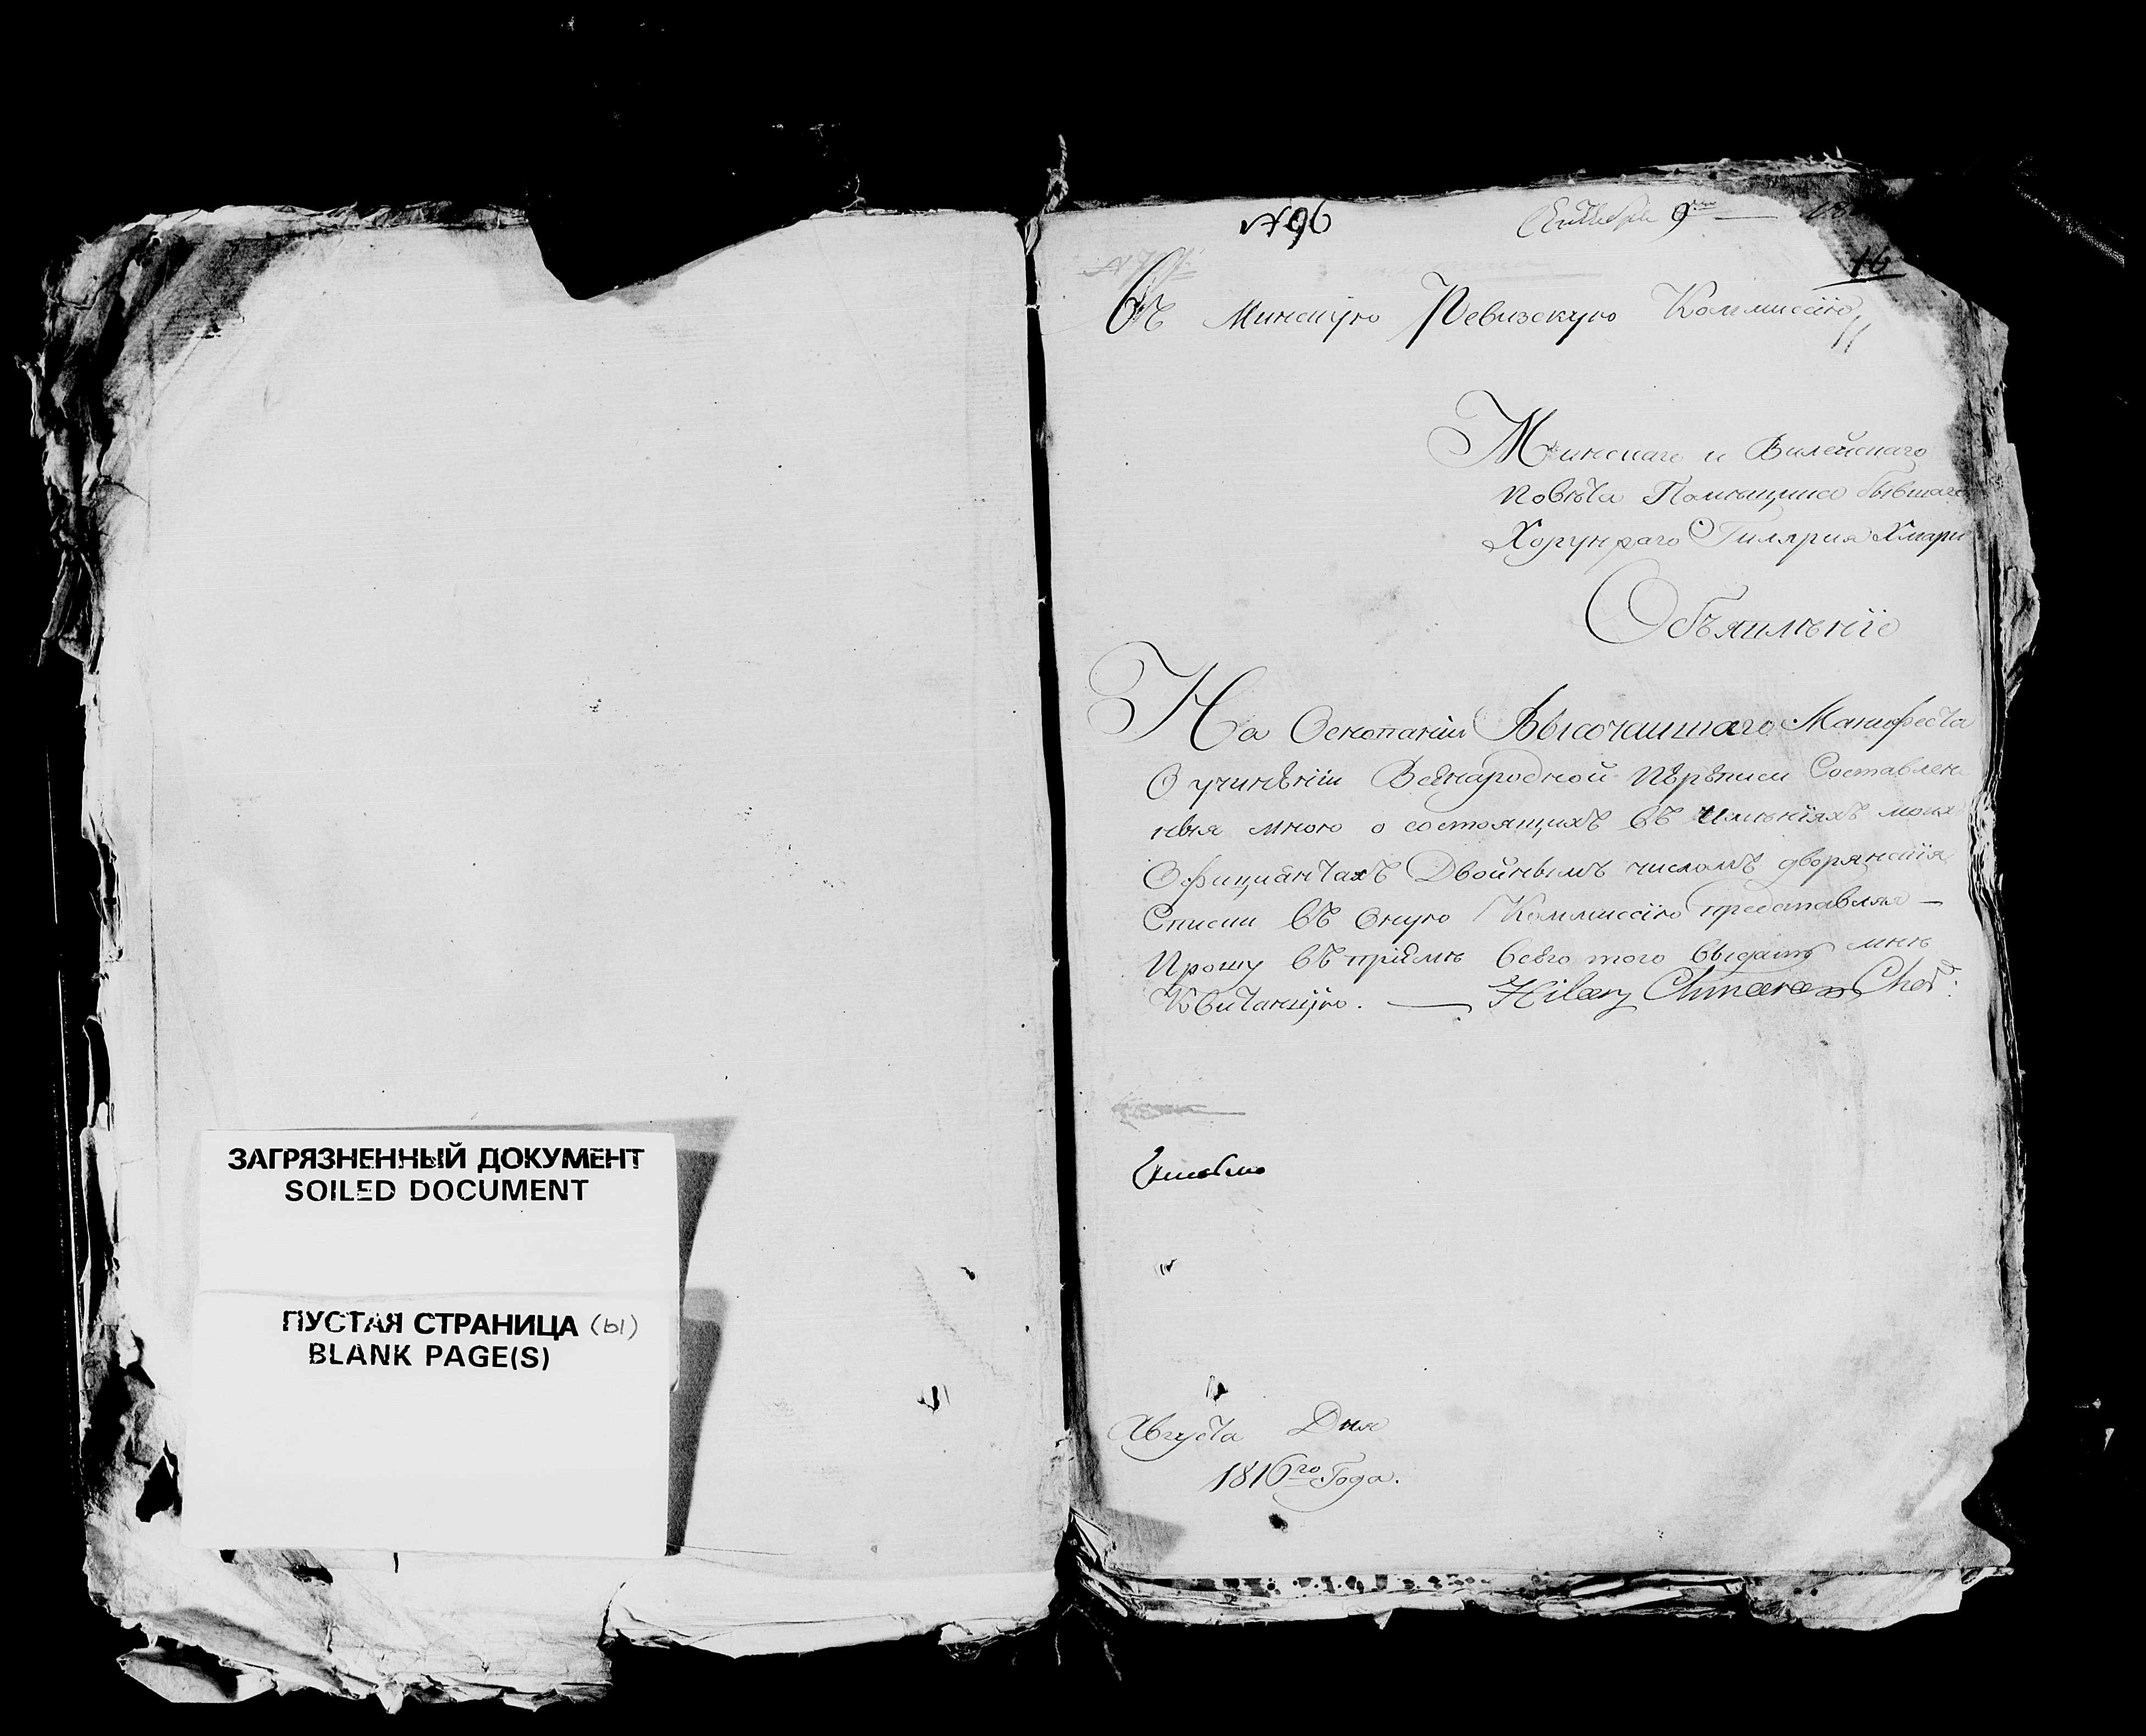 ЗАГРЯЗНЕННЫЙ ДОКУМЕНТ
SOILED DOCUMENT
ПУСТАЯ СТРАНИЦА (ы)
BLANK PAGE(S)
№96
9
16
Въ Минскую Ревизскую Коммиссію
Минскаго и Вилейскаго
Повѣта Помѣщика бывшаго
Хорунжаго Гилярия Хмары
Объявлѣніе
На Основаніи Высочаишаго Манифеста
О учинѣніи Всенародной Пѣрѣписи Составлен
ныя мною о состоящихъ въ Имѣніяхъ моихъ
Официантахъ Двойнымъ числомъ дворянскія
Списки въ оную Коммиссію представляя —
Прошу въ пріемѣ всего того выдать мнѣ
Квитанцію. — Hilary Chmara Chor:
Августа Дня
1816го Года.